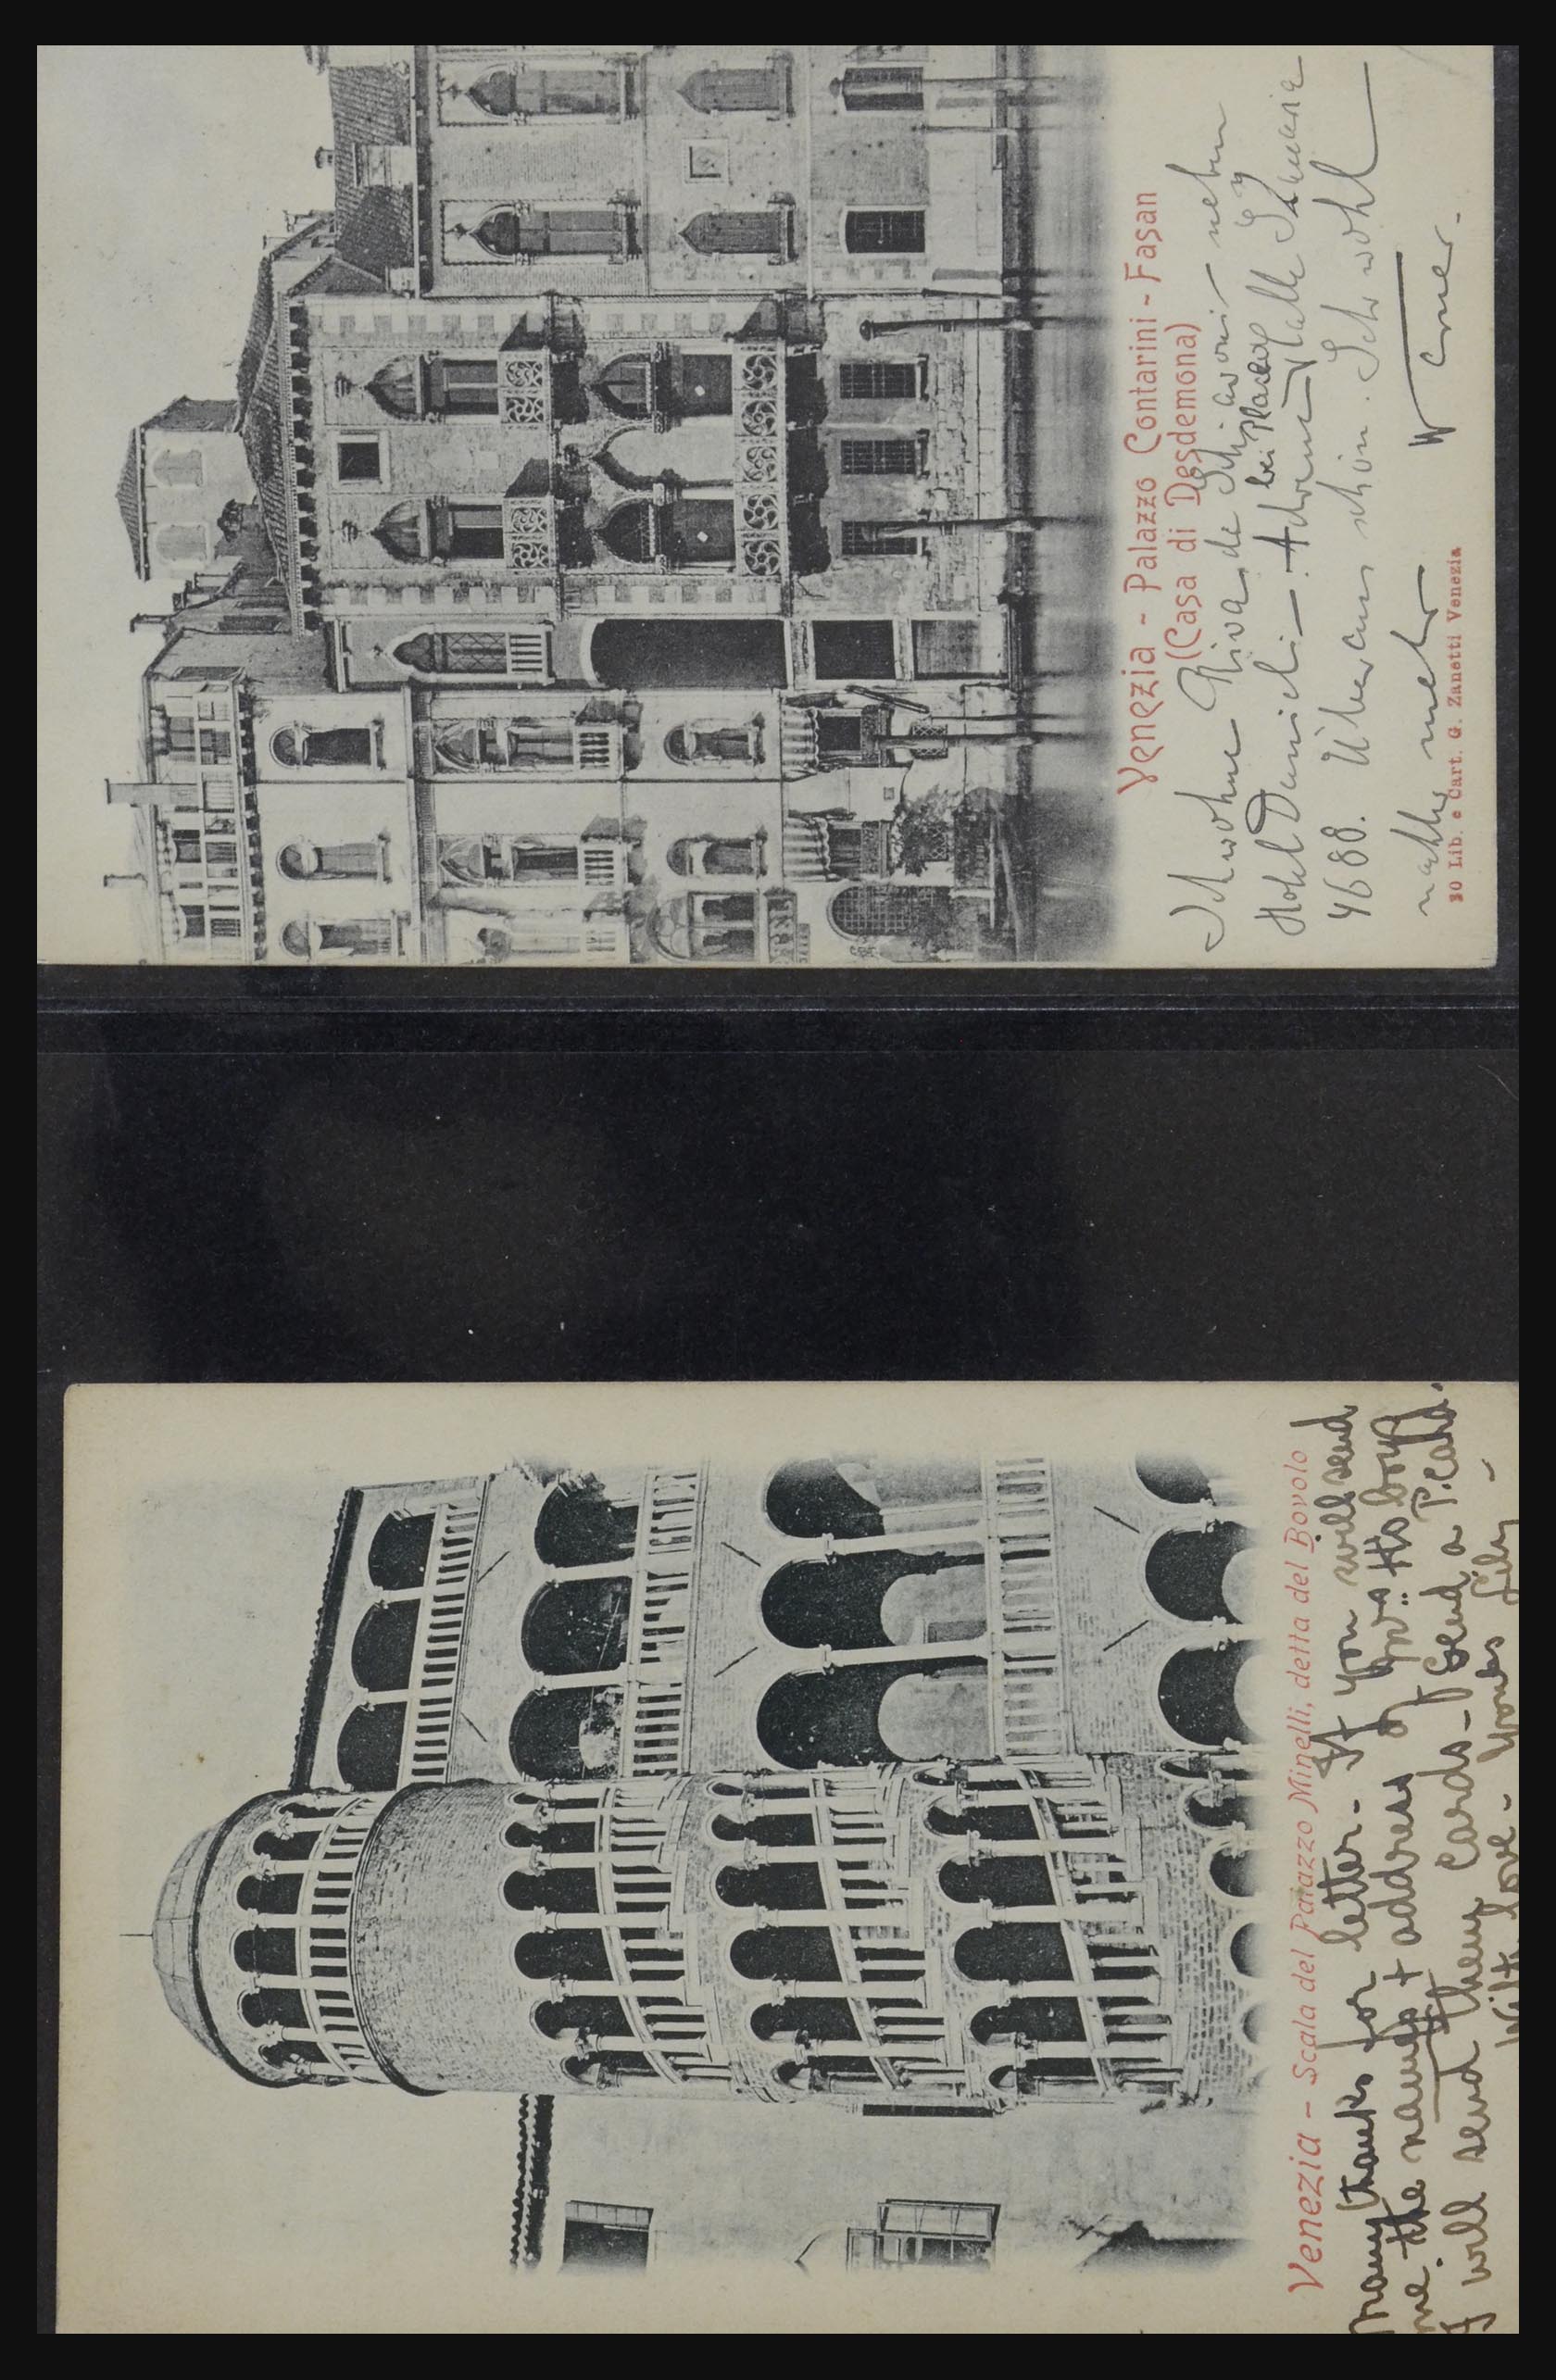 Venezia - Palazzo Contarini - Fasan
(Casa di Desdemona)
Ich wohne Riva de Schiavoni - neben
Hotel Danieli - Adresse
bei Placey
Calle
4688. Überaus schön. Sehr wohl
mehr
30 Lib. e Cart. G. Zanetti Venezia
Venezia - Scala del Palazzo Minelli, detta del Bovolo
Many thanks for letter - If you will send
me the names + address of two boys
I will send them cards - I send a P. Card.
With love - Lily -